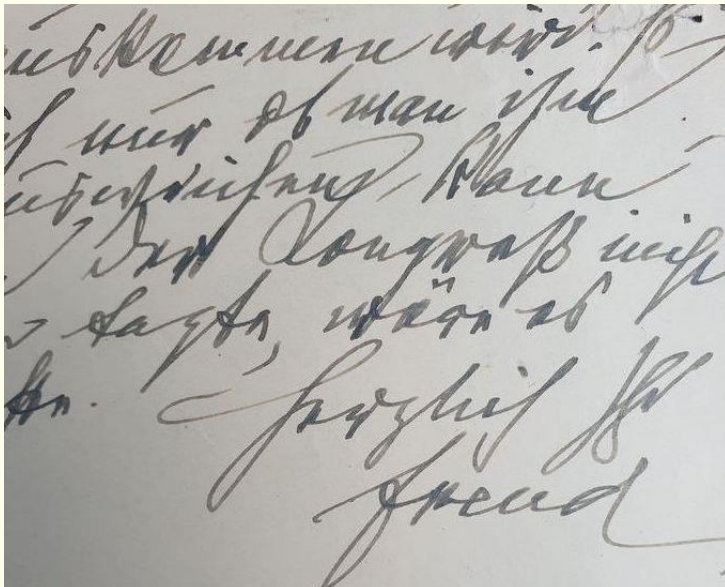 auskommen wird. Es
ich nur ob man ihm
ausweichen kann
der Kongreß nicht
tagte, wäre es
Herzlich Ihr
Freud